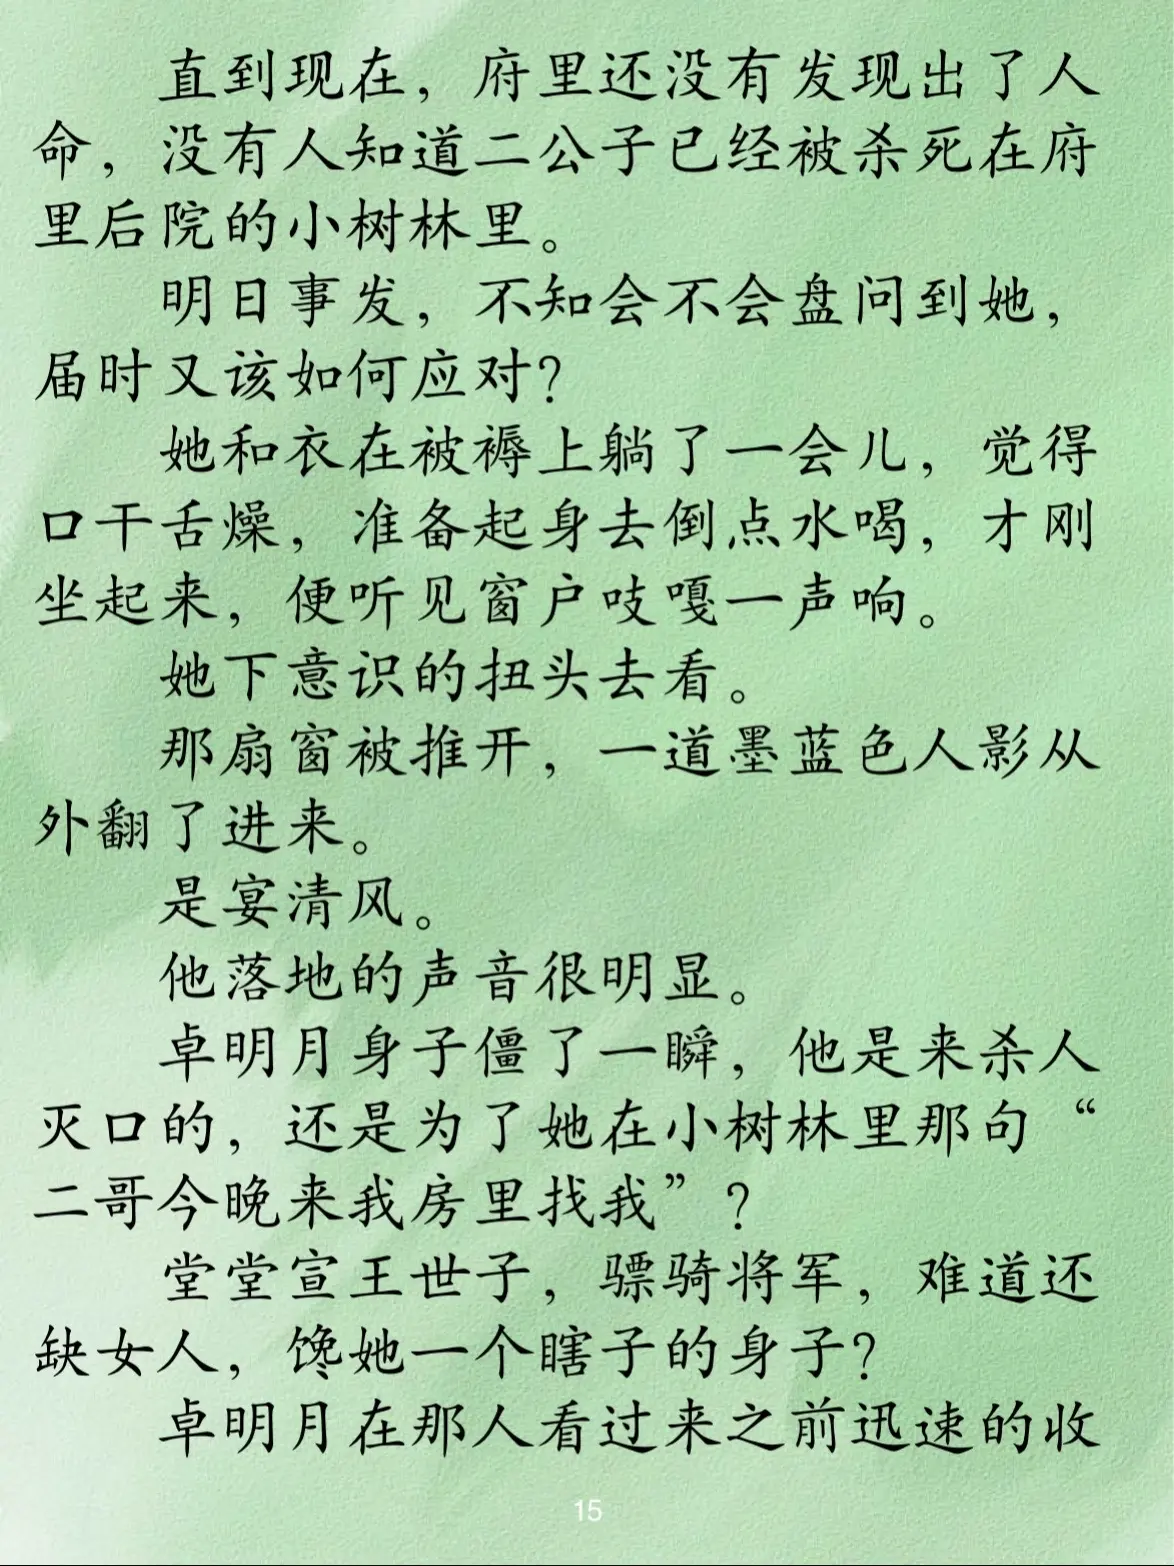 直到现在，府里还没有发现出了人
命，没有人知道二公子已经被杀死在府
里后院的小树林里。
明日事发，不知会不会盘问到她，
届时又该如何应对？
她和衣在被褥上躺了一会儿，觉得
口干舌燥，准备起身去倒点水喝，才刚
坐起来，便听见窗户吱嘎一声响。
她下意识的扭头去看。
那扇窗被推开，一道墨蓝色人影从
外翻了进来。
是宴清风。
他落地的声音很明显。
卓明月身子僵了一瞬，他是来杀人
灭口的，还是为了她在小树林里那句“
二哥今晚来我房里找我”？
堂堂宣王世子，骠骑将军，难道还
缺女人，馋她一个瞎子的身子？
卓明月在那人看过来之前迅速的收
15